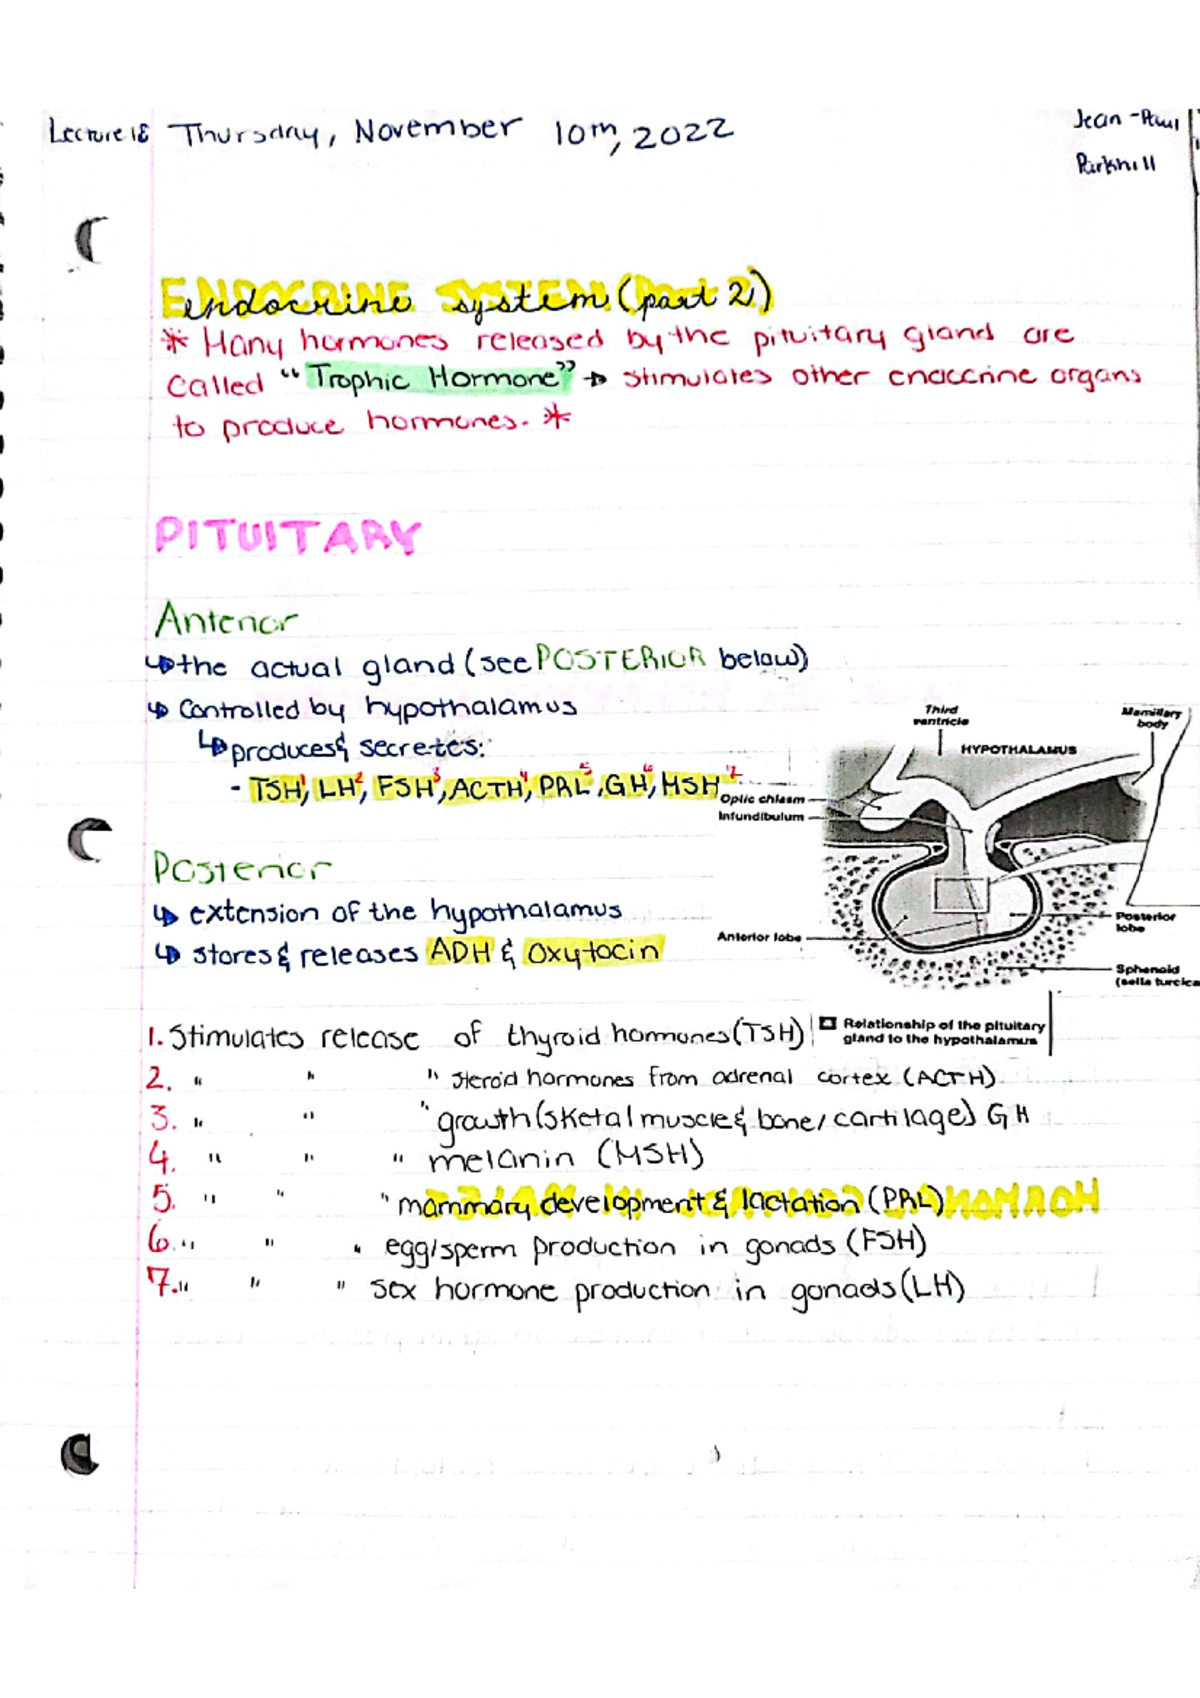 Lecture 18 Thursday, November 10th, 2022
Jean-Paul
Parkhill
Endocrine system (part 2)
* Many hormones released by the pituitary gland are
called "Trophic Hormone" → stimulates other endocrine organs
to produce hormones. *
PITUITARY
Anterior
↳ the actual gland (see POSTERIOR below)
↳ Controlled by hypothalamus
↳ produces & secretes:
- TSH¹, LH², FSH³, ACTH⁴, PRL⁵, GH⁶, MSH⁷
Third
ventricle
Mamillary
body
HYPOTHALAMUS
Optic chiasm
Infundibulum
Anterior lobe
Posterior
lobe
Sphenoid
(sella turcica
Relationship of the pituitary
gland to the hypothalamus
Posterior
↳ extension of the hypothalamus
↳ stores & releases ADH & Oxytocin
1. Stimulates release of thyroid hormones (TSH)
2. " " " steroid hormones from adrenal cortex (ACTH)
3. " " " growth (sketal muscle & bone/cartilage) GH
4. " " " melanin (MSH)
5. " " " mammary development & lactation (PRL)
6. " " " egg/sperm production in gonads (FSH)
7. " " " sex hormone production in gonads (LH)